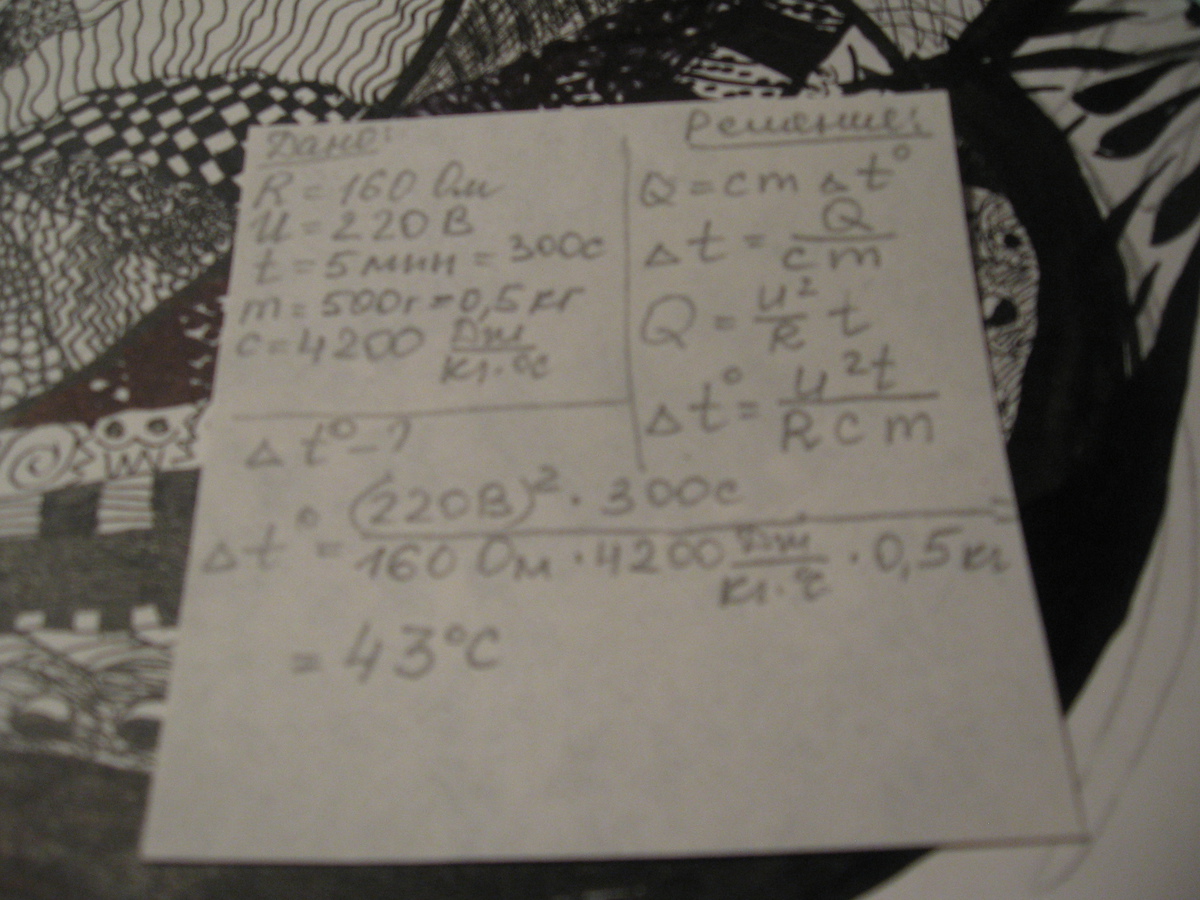 Дано:
R = 160 Ом
U = 220 В
t = 5 мин = 300с
m = 500г = 0,5 кг
c = 4200 Дж/кг·°С
Δt° - ?
Решение:
Q = cm Δt°
Δt = Q/cm
Q = U²/R t
Δt° = U²t/Rcm
Δt° = (220В)² · 300с / 160 Ом · 4200 Дж/кг·°С · 0,5 кг =
= 43°С